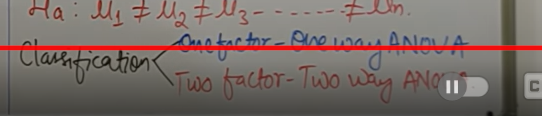 Ha : μ₁ ≠ μ₂ ≠ μ₃ ------- ≠ μn.
Classification < One factor - One way ANOVA
Two factor - Two way ANOVA